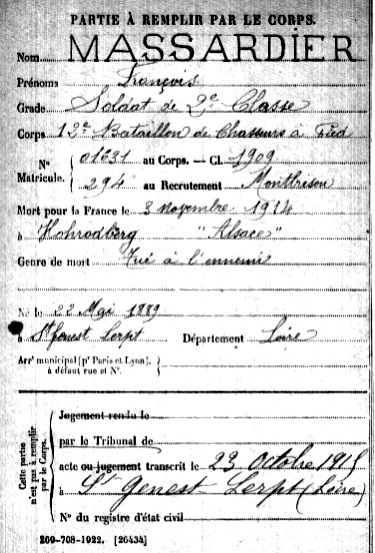 PARTIE À REMPLIR PAR LE CORPS.
Nom MASSARDIER
Prénoms François
Grade Soldat de 2e Classe
Corps 12e Bataillon de Chasseurs à Pied
N° Matricule. 01631 au Corps. — Cl. 1909
294 au Recrutement Montbrison
Mort pour la France le 3 novembre 1914
à Hohrodberg "Alsace"
Genre de mort Tué à l'ennemi
Né le 22 Mai 1889
à St Genest Lerpt Département Loire
Arrt municipal (pr Paris et Lyon),
à défaut rue et N°.
Cette partie n'est pas à remplir par le Corps.
Jugement rendu le
par le Tribunal de
acte ou jugement transcrit le 23 Octobre 1915
à St Genest-Lerpt (Loire)
N° du registre d'état civil
269-708-1922. [26434]